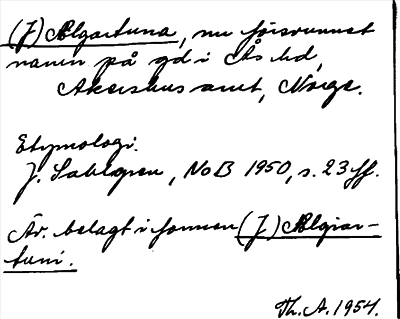 (J) Ælgartuna, nu försvunnet
namn på gd i Ås hd,
Akershus amt, Norge.
Etymologi.
J. Sahlgren, NoB 1950, s. 23 ff.
Är belagt i formen (J) Ælgiar-
tuni.
Th. A. 1954.